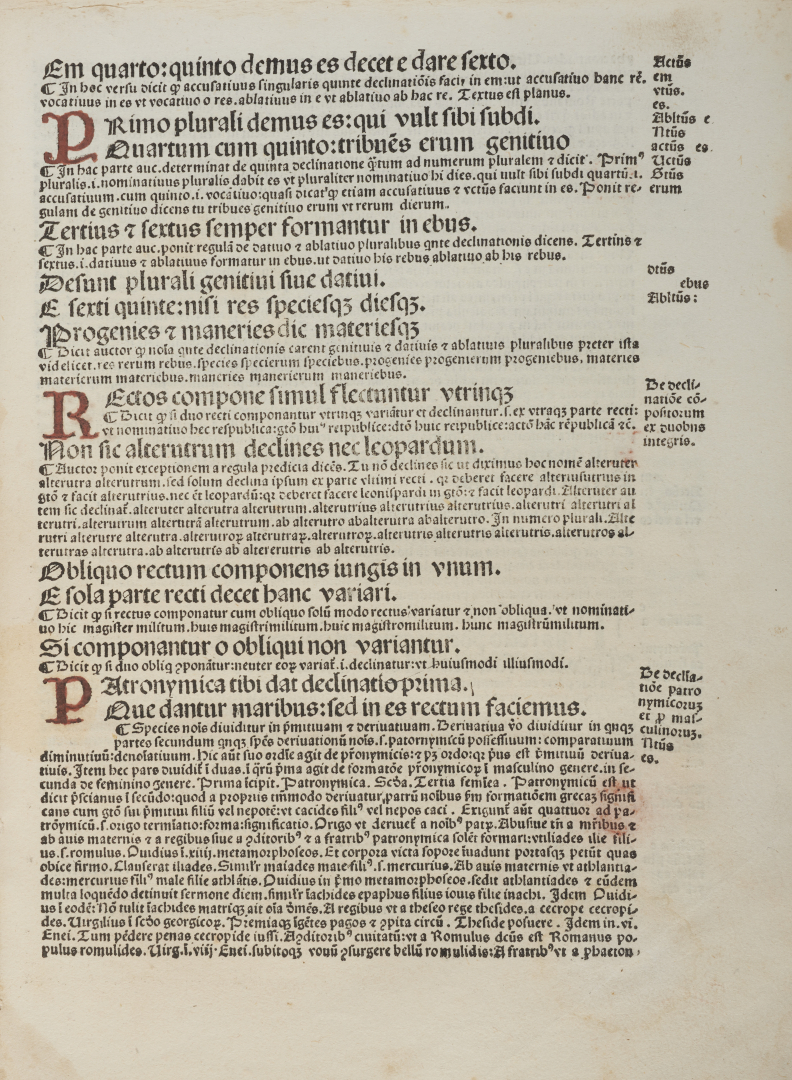 Em quarto:quinto demus es decet e dare sexto.
¶ In hoc versu dicit ꝙ accusatiuus singularis quinte declinatiōis facit in em:ut accusatiuo hanc rē.
vocatiuus in es vt vocatiuo o res.ablatiuus in e vt ablatiuo ab hac re. Textus est planus.
Actūs
em
vtūs.
es.
PRimo plurali demus es:qui vult sibi subdi.
Quartum cum quinto:tribuēs erum genitiuo
¶ In hac parte auc.determinat de quinta declinatione q̄tum ad numerum pluralem ⁊ dicit. Primꝰ
pluralis.i.nominatiuus pluralis dabit es vt pluraliter nominatiuo hi dies.qui uult sibi subdi quartū.i.
accusatiuum.cum quinto.i.vocatiuo:quasi dicat ꝙ etiam accusatiuus ⁊ vctūs faciunt in es. Ponit re-
gulam de genitiuo dicens tu tribues genitiuo erum vt rerum dierum.
Abltūs e
Ntūs
actūs es.
Uctūs
Gtūs
erum
Tertius ⁊ sextus semper formantur in ebus.
¶ In hac parte auc.ponit regulā de datiuo ⁊ ablatiuo pluralibus qnte declinationis dicens. Tertius ⁊
sextus.i.datiuus ⁊ ablatiuus formatur in ebus.ut datiuo his rebus ablatiuo ab his rebus.
dtūs
ebus
Abltūs:
Desunt plurali genitiui siue datiui.
E sexti quinte:nisi res speciesqꝫ diesqꝫ.
Progenies ⁊ maneries dic materiesqꝫ
¶ Dicit auctor ꝙ noīa qnte declinationis carent genitiuis ⁊ datiuis ⁊ ablatiuis pluralibus preter ista
videlicet.res rerum rebus.species specierum speciebus.progenies progenierum progeniebus, materies
materierum materiebus.maneries manerierum maneriebus.
REctos compone simul flectuntur vtrinqꝫ
¶ Dicit ꝙ si duo recti componantur vtrinqꝫ variātur et declinantur.s.ex vtraqꝫ parte recti:
vt nominatiuo hec respublica:gtō huiꝰ reipublice:dtō huic reipublice:actō hāc rēpublicā ⁊c̄.
De decli-
natiōe cō-
positorum
ex duobus
integris.
Non sic alterutrum declines nec leopardum.
¶ Auctor ponit exceptionem a regula predicta dicēs. Tu nō declines sic ut diximus hoc nomē alteruter
alterutra alterutrum.sed solum declina ipsum ex parte vltimi recti. qꝛ deberet facere alteriusutrius in
gtō ⁊ facit alterutrius.nec ēt leopardū:qꝛ deberet facere leonispardi in gtō:⁊ facit leopardi. Alteruter au
tem sic declinat̄.alteruter alterutra alterutrum.alterutrius alterutrius alterutrius.alterutri alterutri al
terutri.alterutrum alterutrā alterutrum.ab alterutro abalterutra abalterutro. In numero plurali. Alte
rutri alterutre alterutra.alterutroꝝ alterutraꝝ.alterutroꝝ.alterutris alterutris alterutris.alterutros al-
terutras alterutra.ab alterutris ab altererutris ab alterutris.
Obliquo rectum componens iungis in vnum.
E sola parte recti decet hanc variari.
¶ Dicit ꝙ si rectus componatur cum obliquo solū modo rectus variatur ⁊ non obliqua. vt nominati-
uo hic magister militum.huis magistrimilitum.huic magistromilitum. hunc magistrūmilitum.
Si componantur o obliqui non variantur.
¶ Dicit ꝙ si duo obliq ꝯponātur:neuter eoꝝ variat̄.i.declinatur:vt huiusmodi illiusmodi.
PAtronymica tibi dat declinatio prima.
Que dantur maribus:sed in es rectum faciemus.
¶ Species nois diuiditur in p̄mitiuam ⁊ deriuatiuam. Deriuatiua v̄o diuiditur in qnqꝫ
partes secundum qnqꝫ spēs deriuationū nois.s.patornymicū possessiuum: comparatiuum
diminutiuū:denoiatiuum. Hic aūt suo ordīe agit de pr̄onymicis:⁊ pꝫ ordo:qꝛ pꝰus est p̄mitiuū deriua-
tiuis. Item hec pars diuidit̄ ī duas. ī q̄rū p̄ma agit de formatōe pr̄onymicoꝝ ī masculino genere. in se-
cunda de feminino genere. Prima īcipit. Patronymica. Scd̄a. Tertia semīea. Patronymicū est ut
dicit p̄scianus ī secūdo:quod a propriis tm̄modo deriuatur,patrū noībus ꝑm formatiōem grecaꝫ signifi
cans cum gtō sui p̄mitiui filiū vel nepotē:vt eacides filiꝰ vel nepos eaci. Exigunt̄ aūt quattuor ad pa-
trōymicū.s.origo termīatio:forma:significatio. Origo vt deriuet̄ a noībꝰ patꝝ. Abusiue tn̄ a mr̄ibus ⁊
ab auis maternis ⁊ a regibus siue a ꝯditoribꝰ ⁊ a fratribꝰ patronymica solēt formari:vtiliades ilie fili-
us.s.romulus. Ouidius l.xiiij.metamorphoseos. Et corpora victa sopore īuadunt portasqꝫ petūt quas
obice firmo. Clauserat iliades. Similr̄ maiades maie filiꝰ.s.mercurius. Ab auis maternis vt athlantia-
des:mercurius filiꝰ maie filie athlātis. Ouidius in p̄mo metamorphoseos.sedit athlantiades ⁊ eūdem
multa loquēdo detinuit sermone diem.similr̄ īachides epaphus filius iouis filie inachi. Idem Ouidi-
us ī eodē: Nō tulit īachides matriqꝫ ait oīa dēmēs. A regibus vt a theseo rege thesides.a cecrope cecropi-
des. Uirgilius ī scd̄o georgicoꝝ. Premiaqꝫ īgētes pagos ⁊ ꝯpita circū. Theside posuere. Idem in.vi.
Enei. Tum pēdere penas cecropide iussi. A ꝯditoribꝰ ciuitatū:vt a Romulus dc̄us est Romanus po-
pulus romulides. Uirg.ī.viij. Enei.subitoqꝫ nouū ꝯsurgere bellū romulidis: A fratribꝰ vt a phaeton
De decla-
tiōe patro
nymicoruꝫ
et ꝑ mas-
culinoruꝫ.
Ntūs
es.